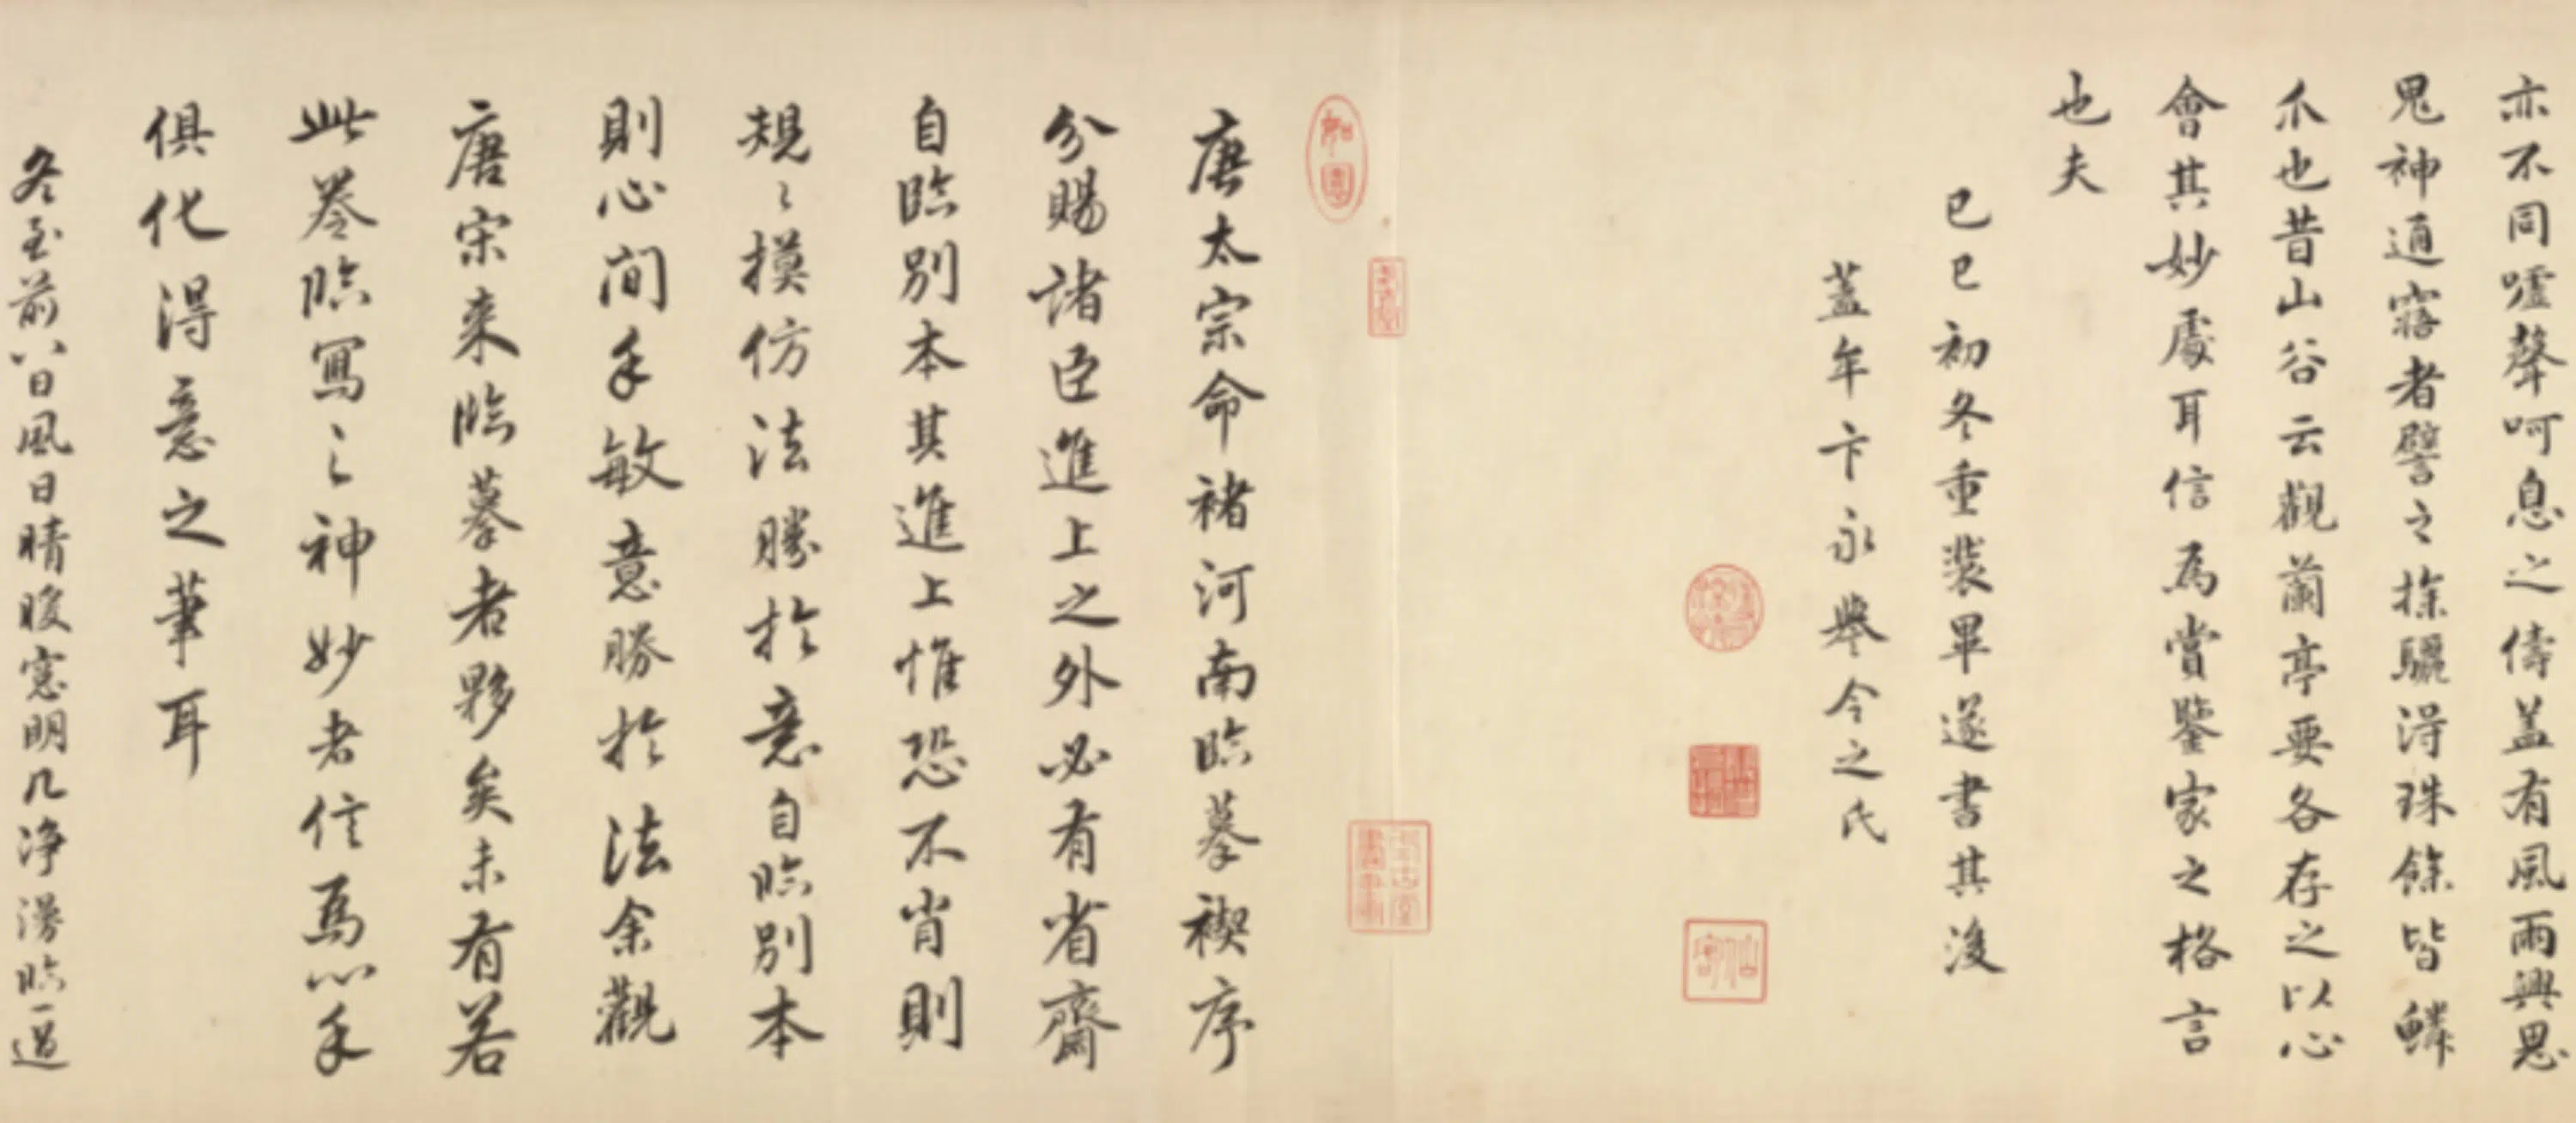 亦不同噓聲呵息之儔盖有風雨興思
鬼神通寤者譬之探驪得珠餘皆鱗
爪也昔山谷云觀蘭亭要各存之以心
會其妙處耳信爲賞鑒家之格言
也夫
已巳初冬重裝畢遂書其後
蓋年卞永譽令之氏
唐太宗命褚河南臨摹禊序
分賜諸臣進上之外必有省齋
自臨別本其進上惟恐不肖則
規〻摸仿法勝於意自臨別本
則心閒手敏意勝於法余觀
唐宋来臨摹者夥矣未有若
此卷臨寫之神妙者信爲心手
俱化得意之筆耳
冬至前八日風日晴暖窓明几淨漫臨一過